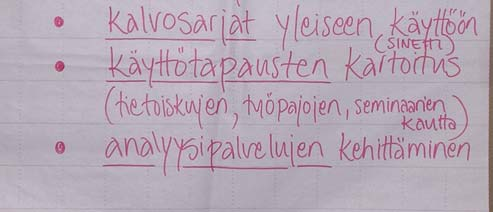 • kalvosarjat yleiseen käyttöön
(SINETTI)
• käyttötapausten kartoitus
(tietoiskujen, työpajojen, seminaarien
kautta)
• analyysipalvelujen kehittäminen